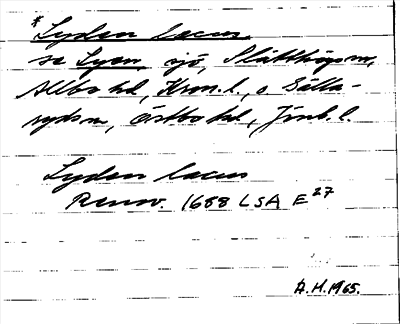 *Lyden lacus
se Lyen, sjö, Slätthögs sn,
Allbo hd, Kron. l., o. Sälla-
ryds sn, Östbo hd, Jönk. l.
Lyden lacus
Rannv. 1688 LSA E 27
A.H. 1965.